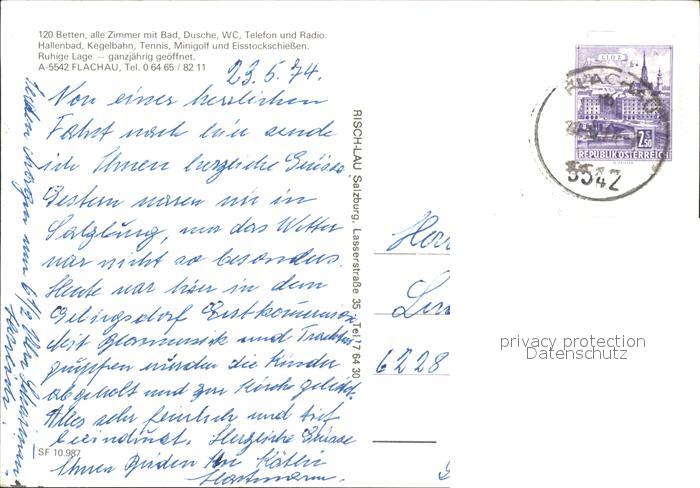 120 Betten, alle Zimmer mit Bad, Dusche, WC, Telefon und Radio.
Hallenbad, Kegelbahn, Tennis, Minigolf und Eisstockschießen.
Ruhige Lage — ganzjährig geöffnet.
A-5542 FLACHAU, Tel. 0 64 65 / 82 11
23.5.74.
Von einer herrlichen
Fahrt nach hier sende
ich Ihnen herzliche Grüsse
Gestern waren wir in
Salzburg, nur das Wetter
war nicht so besonders.
Heute war hier in dem
Gebirgsdorf Erstkommunion
Mit Blasmusik und Trachten
gruppen wurden die Kinder
abgeholt und zur Kirche geleitet.
Alles sehr feierlich und tief
beeindruckt. Herzliche Grüsse
Ihnen Beiden Ihre Käthi
Hartmann.
jeden morgen um 6 1/2 Uhr
SF 10.987
RISCH-LAU Salzburg, Lasserstraße 35, Tel. 17 64 30
LINZ
2,50
REPUBLIK ÖSTERREICH
5542
Herr
6228
privacy protection
Datenschutz